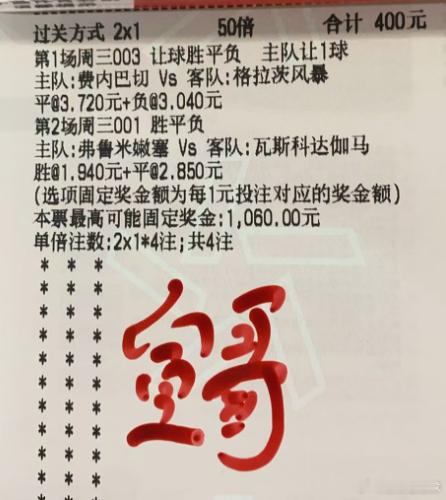 过关方式 2x1 50倍 合计 400元
第1场周三003 让球胜平负 主队让1球
主队:费内巴切 Vs 客队:格拉茨风暴
平@3.720元+负@3.040元
第2场周三001 胜平负
主队:弗鲁米嫩塞 Vs 客队:瓦斯科达伽马
胜@1.940元+平@2.850元
(选项固定奖金额为每1元投注对应的奖金额)
本票最高可能固定奖金:1,060.00元
单倍注数:2x1*4注;共4注
* * *
* * *
* * *
* * *
* * *
* * *
* * *
* * *
* * *
* * *
* * *